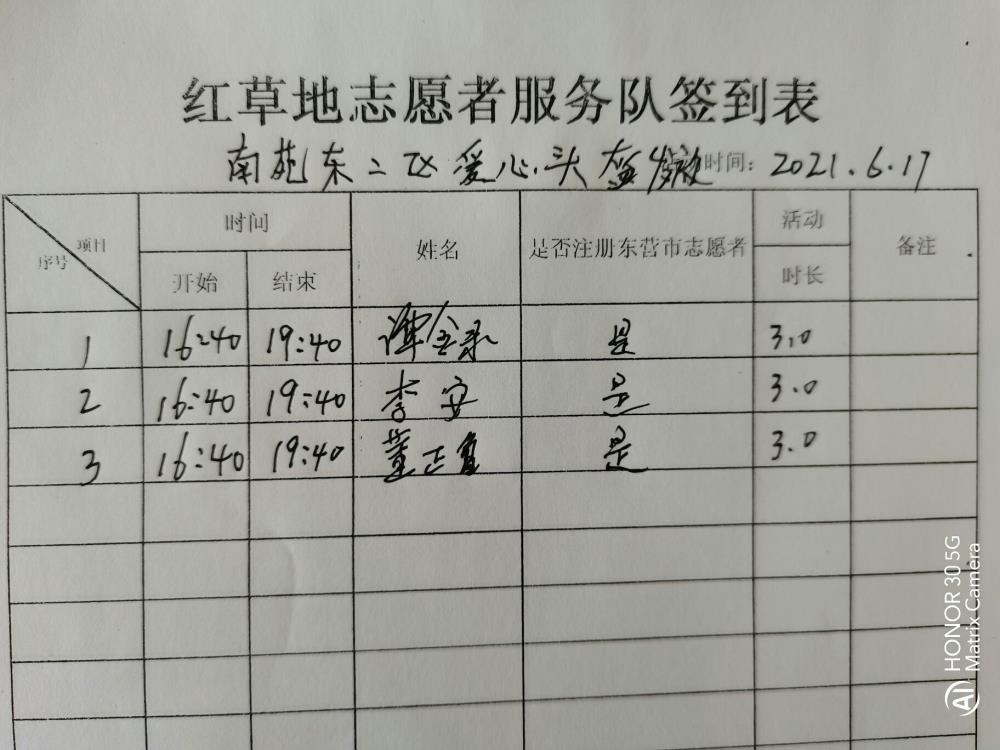 红草地志愿者服务队签到表
南苑东二区爱心头盔发放 时间：2021.6.17
项目 序号 时间 姓名 是否注册东营市志愿者 活动 备注
开始 结束 时长
1 16:40 19:40 谭金录 是 3.0
2 16:40 19:40 李安 是 3.0
3 16:40 19:40 董正 是 3.0
HONOR 30 5G
Matrix Camera
AI